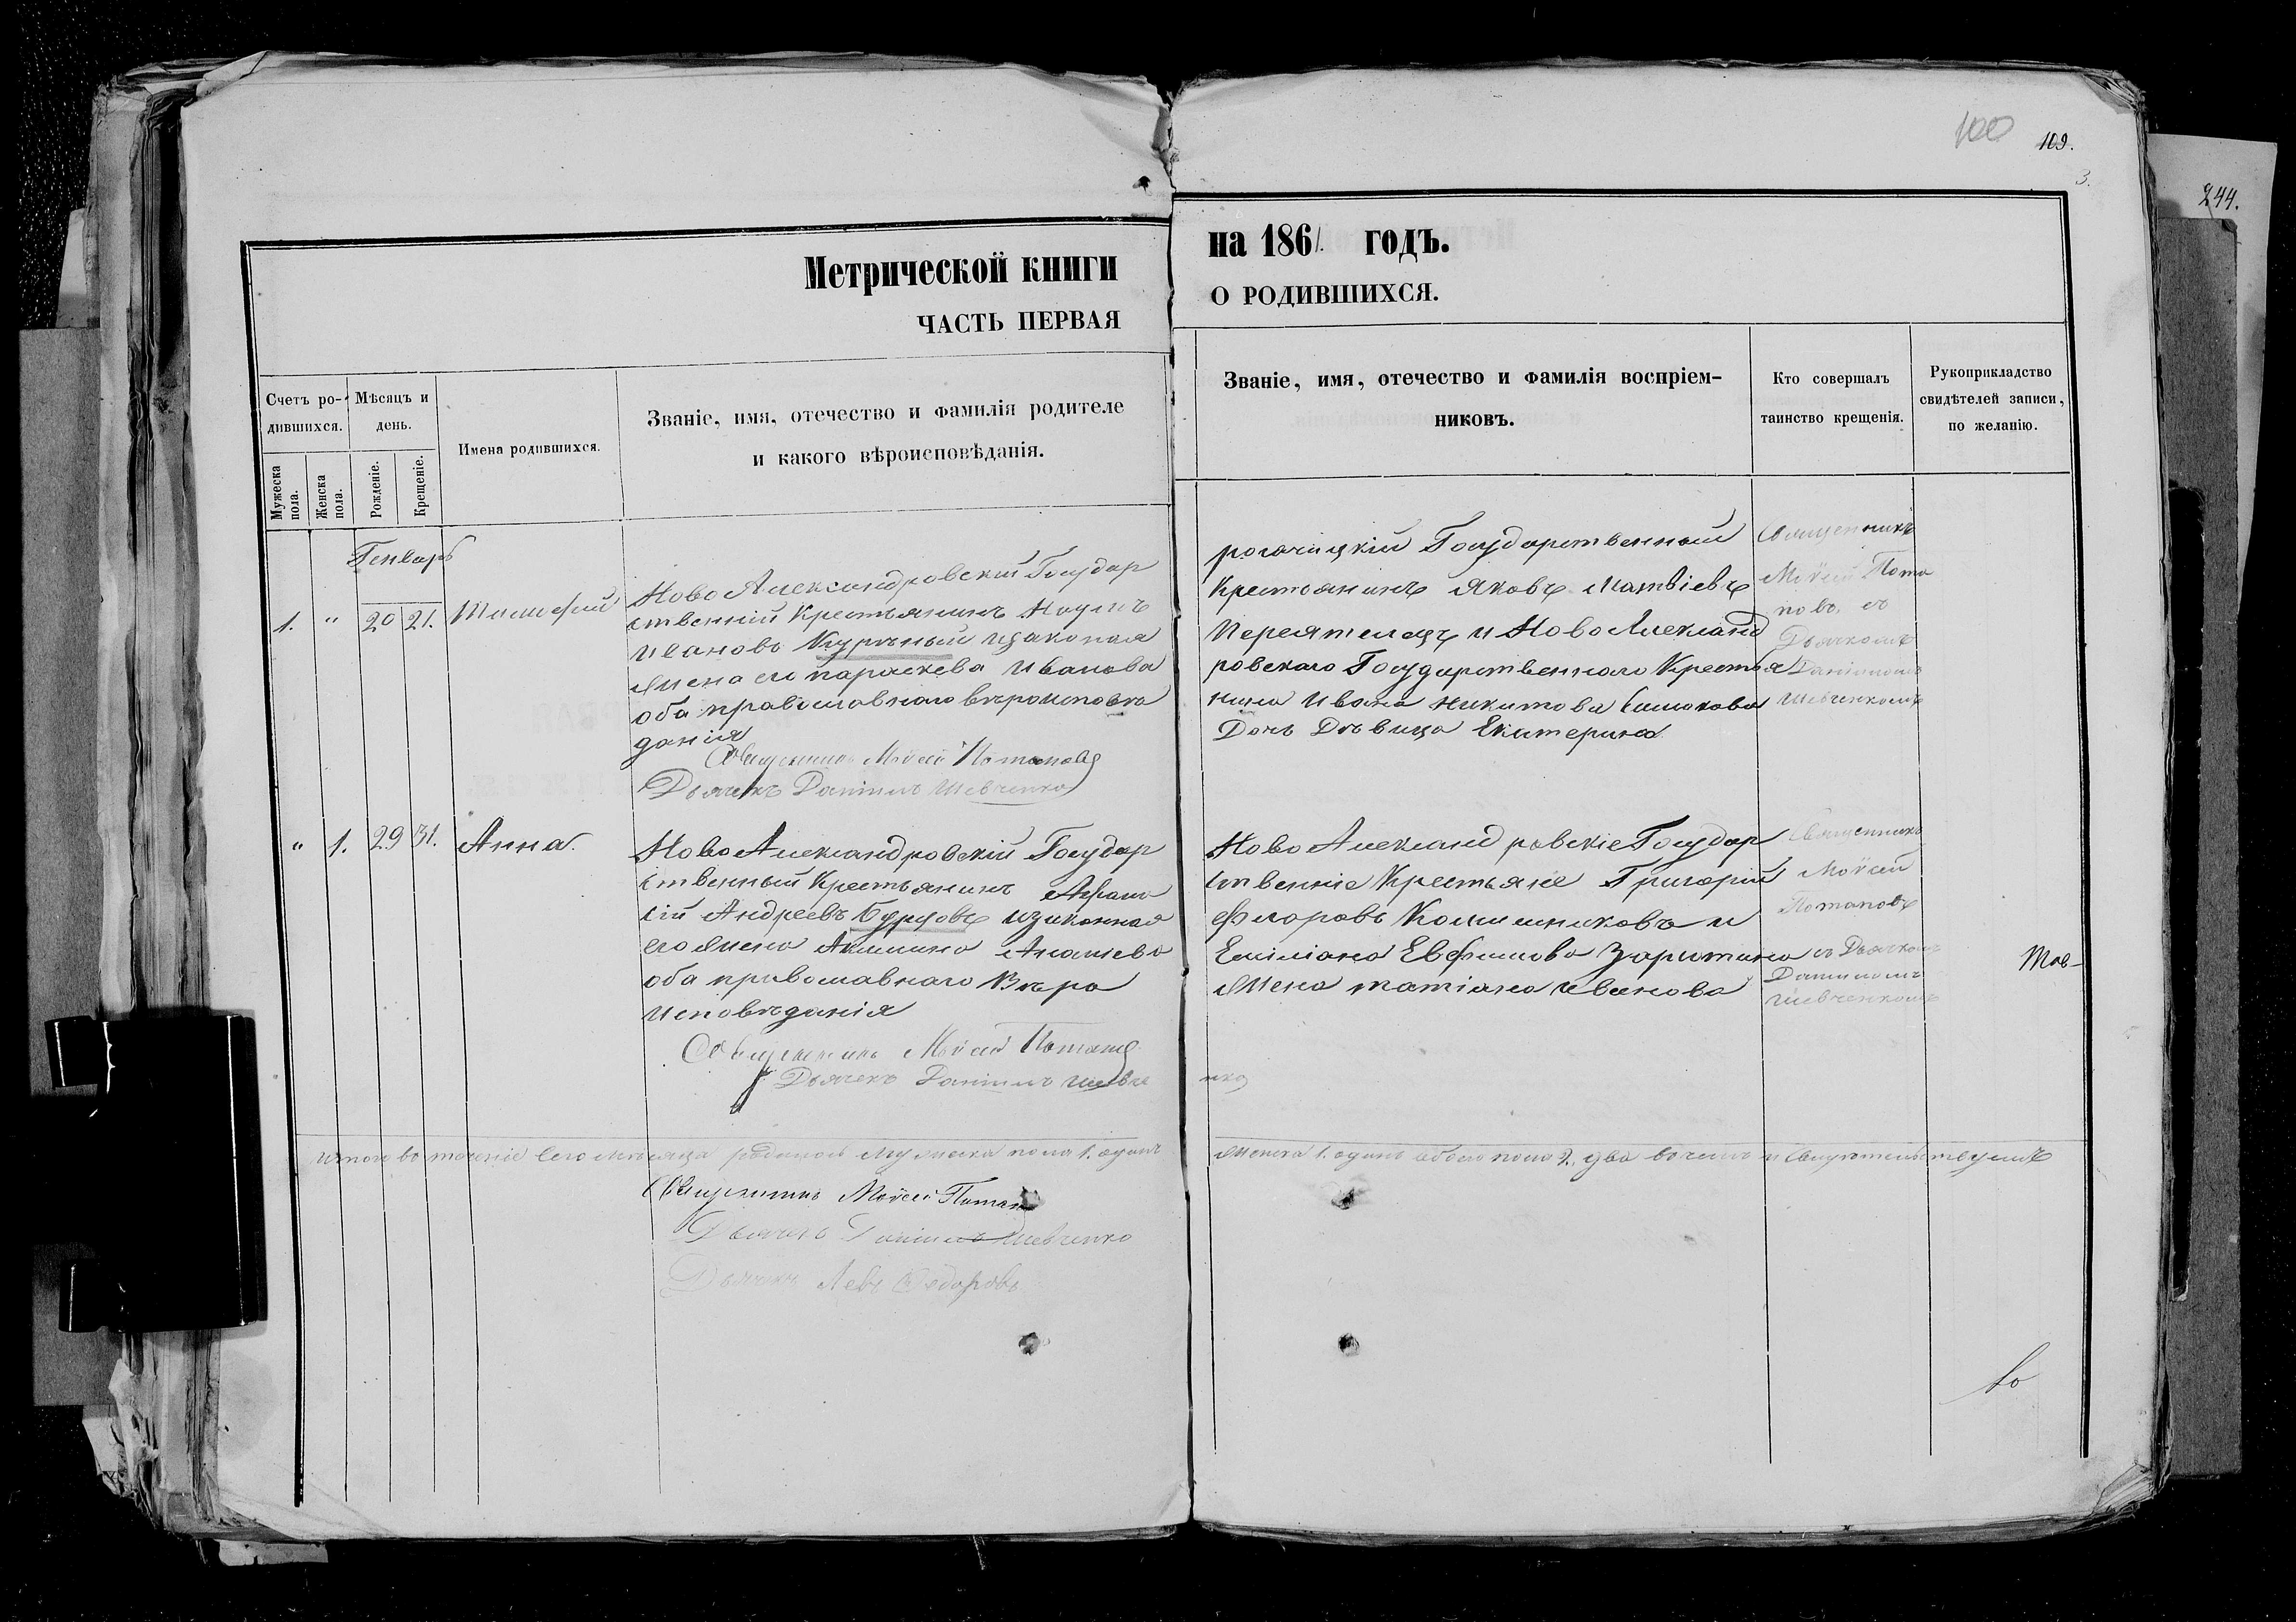 100
109.
3.
244.
Метрической книги
ЧАСТЬ ПЕРВАЯ
на 1861. годъ.
О РОДИВШИХСЯ.
Счетъ ро-
дившихся.
Мужеска
пола.
Женска
пола.
Мѣсяцъ и
день.
Рожденіе.
Крещеніе.
Имена родившихся.
Званіе, имя, отечество и фамилія родителе
и какого вѣроисповѣданія.
Званіе, имя, отечество и фамилія воспріем-
никовъ.
Кто совершалъ
таинство крещенія.
Рукоприкладство
свидѣтелей записи,
по желанію.
Генварь
1. " 20 21.
Ново Александровскій Государ
ственній Крестьянинъ Наумъ
Ивановъ изаконая
жена его параскева Иванова
оба православнаго вѣроисповѣ
данія
Священникъ Мойсей Потаповъ
Дьячекъ Даніилъ Шевченко
рогачицкій Государственный
Крестьянинъ Яковъ Матвіевъ
Переятецъ и Ново Александ
ровскаго Государственнаго Крестья
нина Ивана Никитова
Дочь Дѣвица Екатерина
Священникъ
Мойсей Пота
повъ съ
Дьячкомъ
Даніиломъ
Шевченкомъ
" 1. 29 31. Анна.
Ново Александровскій Государ
ственный Крестьянинъ Афана
сій Андреевъ Бурдовъ изаконная
его жена Акилина Ананіева
оба православнаго Вѣро
исповѣданія
Священникъ Мойсей Потапов
Дьячекъ Даніилъ Шевче
нко
Ново Александровскіе Государ
ственніе Крестьяне Григорій
Фіоровъ Колпашниковъ и
Еміліана Евфимова Зарютина
жена татіана Иванова
Священникъ
Мойсей
Потаповъ
съ Дьячкомъ
Даніиломъ
Шевченкомъ
Тав-
Итого во теченіе сего мѣсяца родилось Мужеска пола 1. одинъ
женска 1. одинъ обоего пола 2. два во чемъ и свидѣтельствуемъ
Священникъ Мойсей Потапов
Дьячекъ Даніилъ Шевченко
Дьячекъ Левъ Федоровъ
во